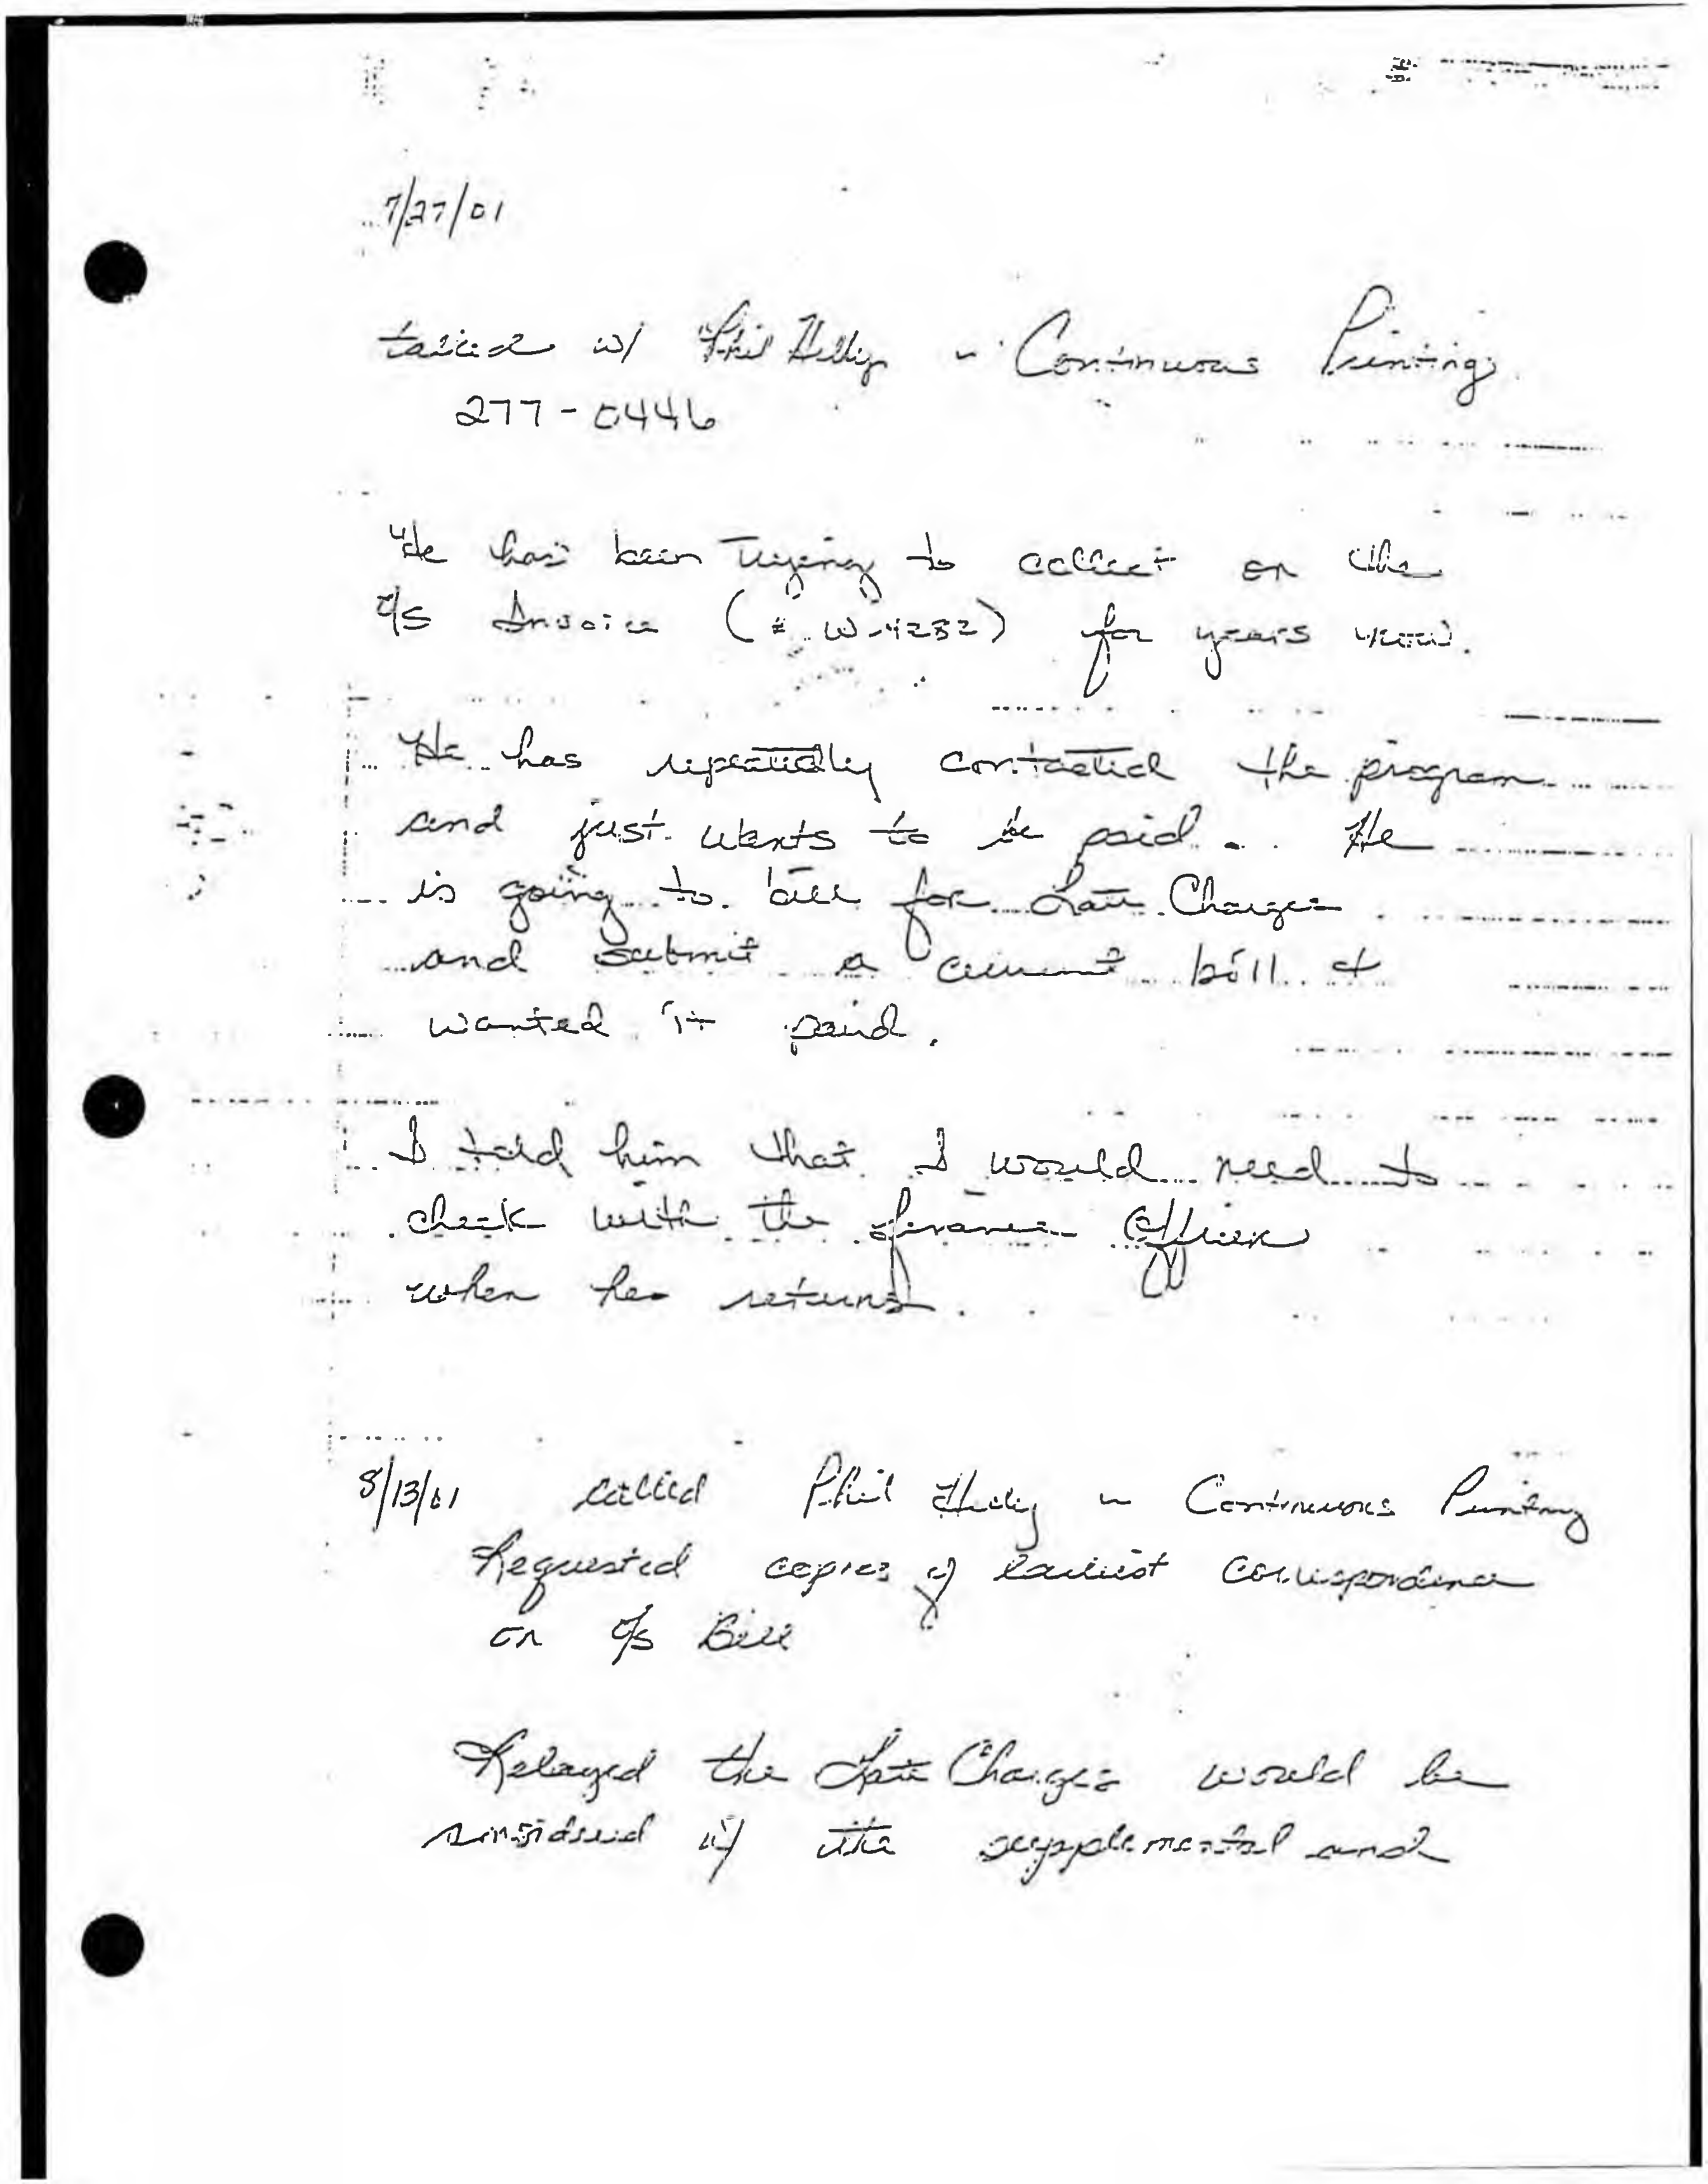 7/27/01
talked w/ Phil ~ Continuous Printing
277-0446
He has been trying to collect on the
o/s Invoice (# W-4282) for years now.
He has repeatedly contacted the program
and just wants to be paid. He
is going to bill for Late Charges
and submit a current bill &
wanted it paid.
I told him that I would need to
check with the finance Officer
when he returns.
8/13/01 called Phil ~ Continuous Printing
Requested copies of earliest correspondence
on o/s Bill
Relayed the Late Charges would be
considered w/ the supplemental and